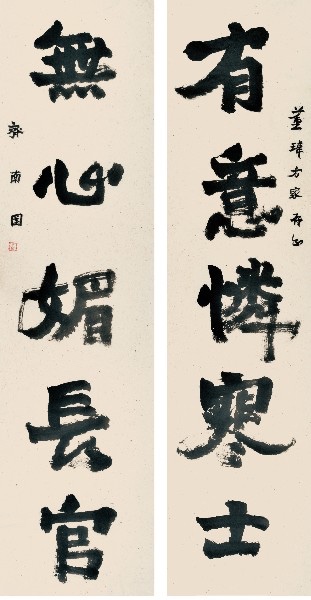 董瑋方家存正
有意憐寒士
無心媚長官
齊南国